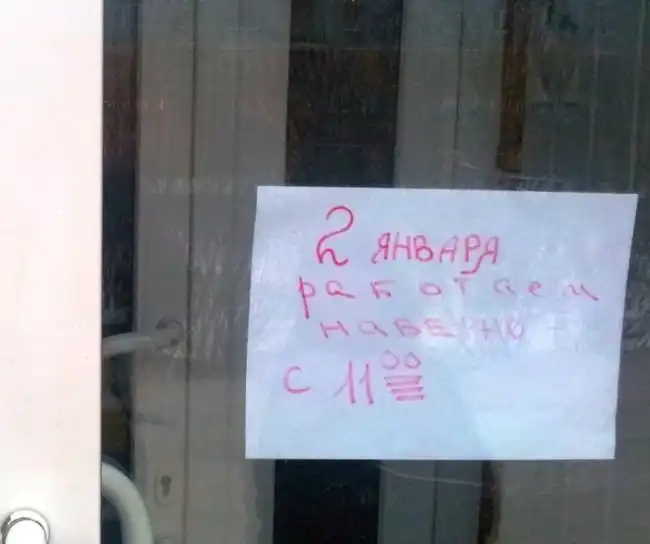 2 ЯНВАРЯ
работаем
НАВЕРНО
с 11 00